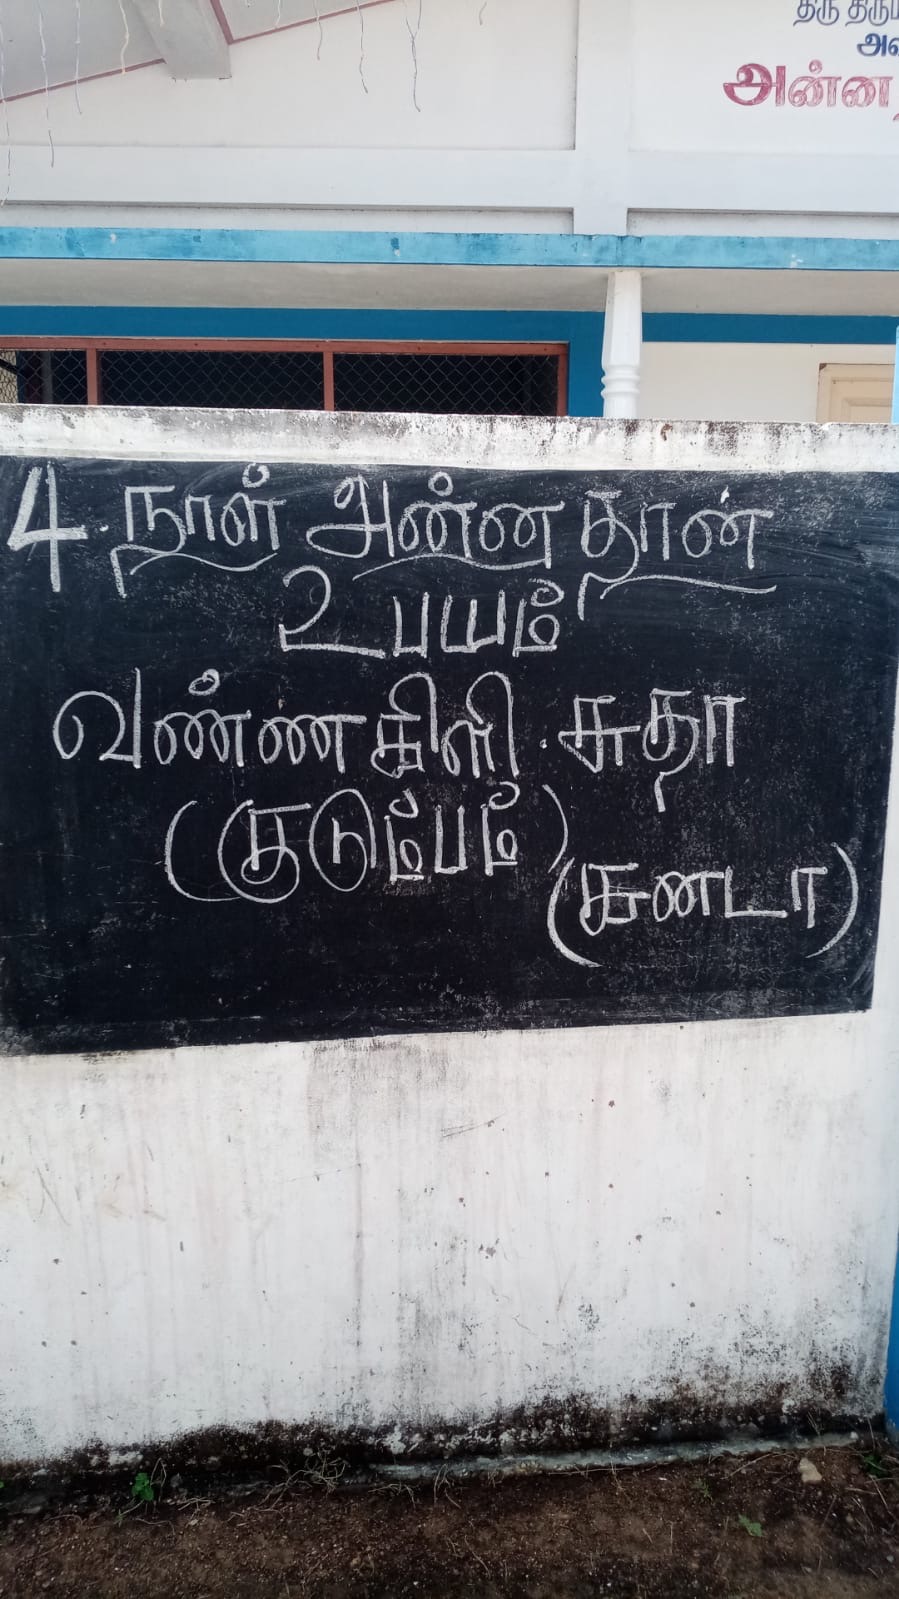 அன்ன
4. நாள் அன்ன தான்
உபயம்
வண்ண கிளி . சுதா
(குடும்பம்)
(கனடா)